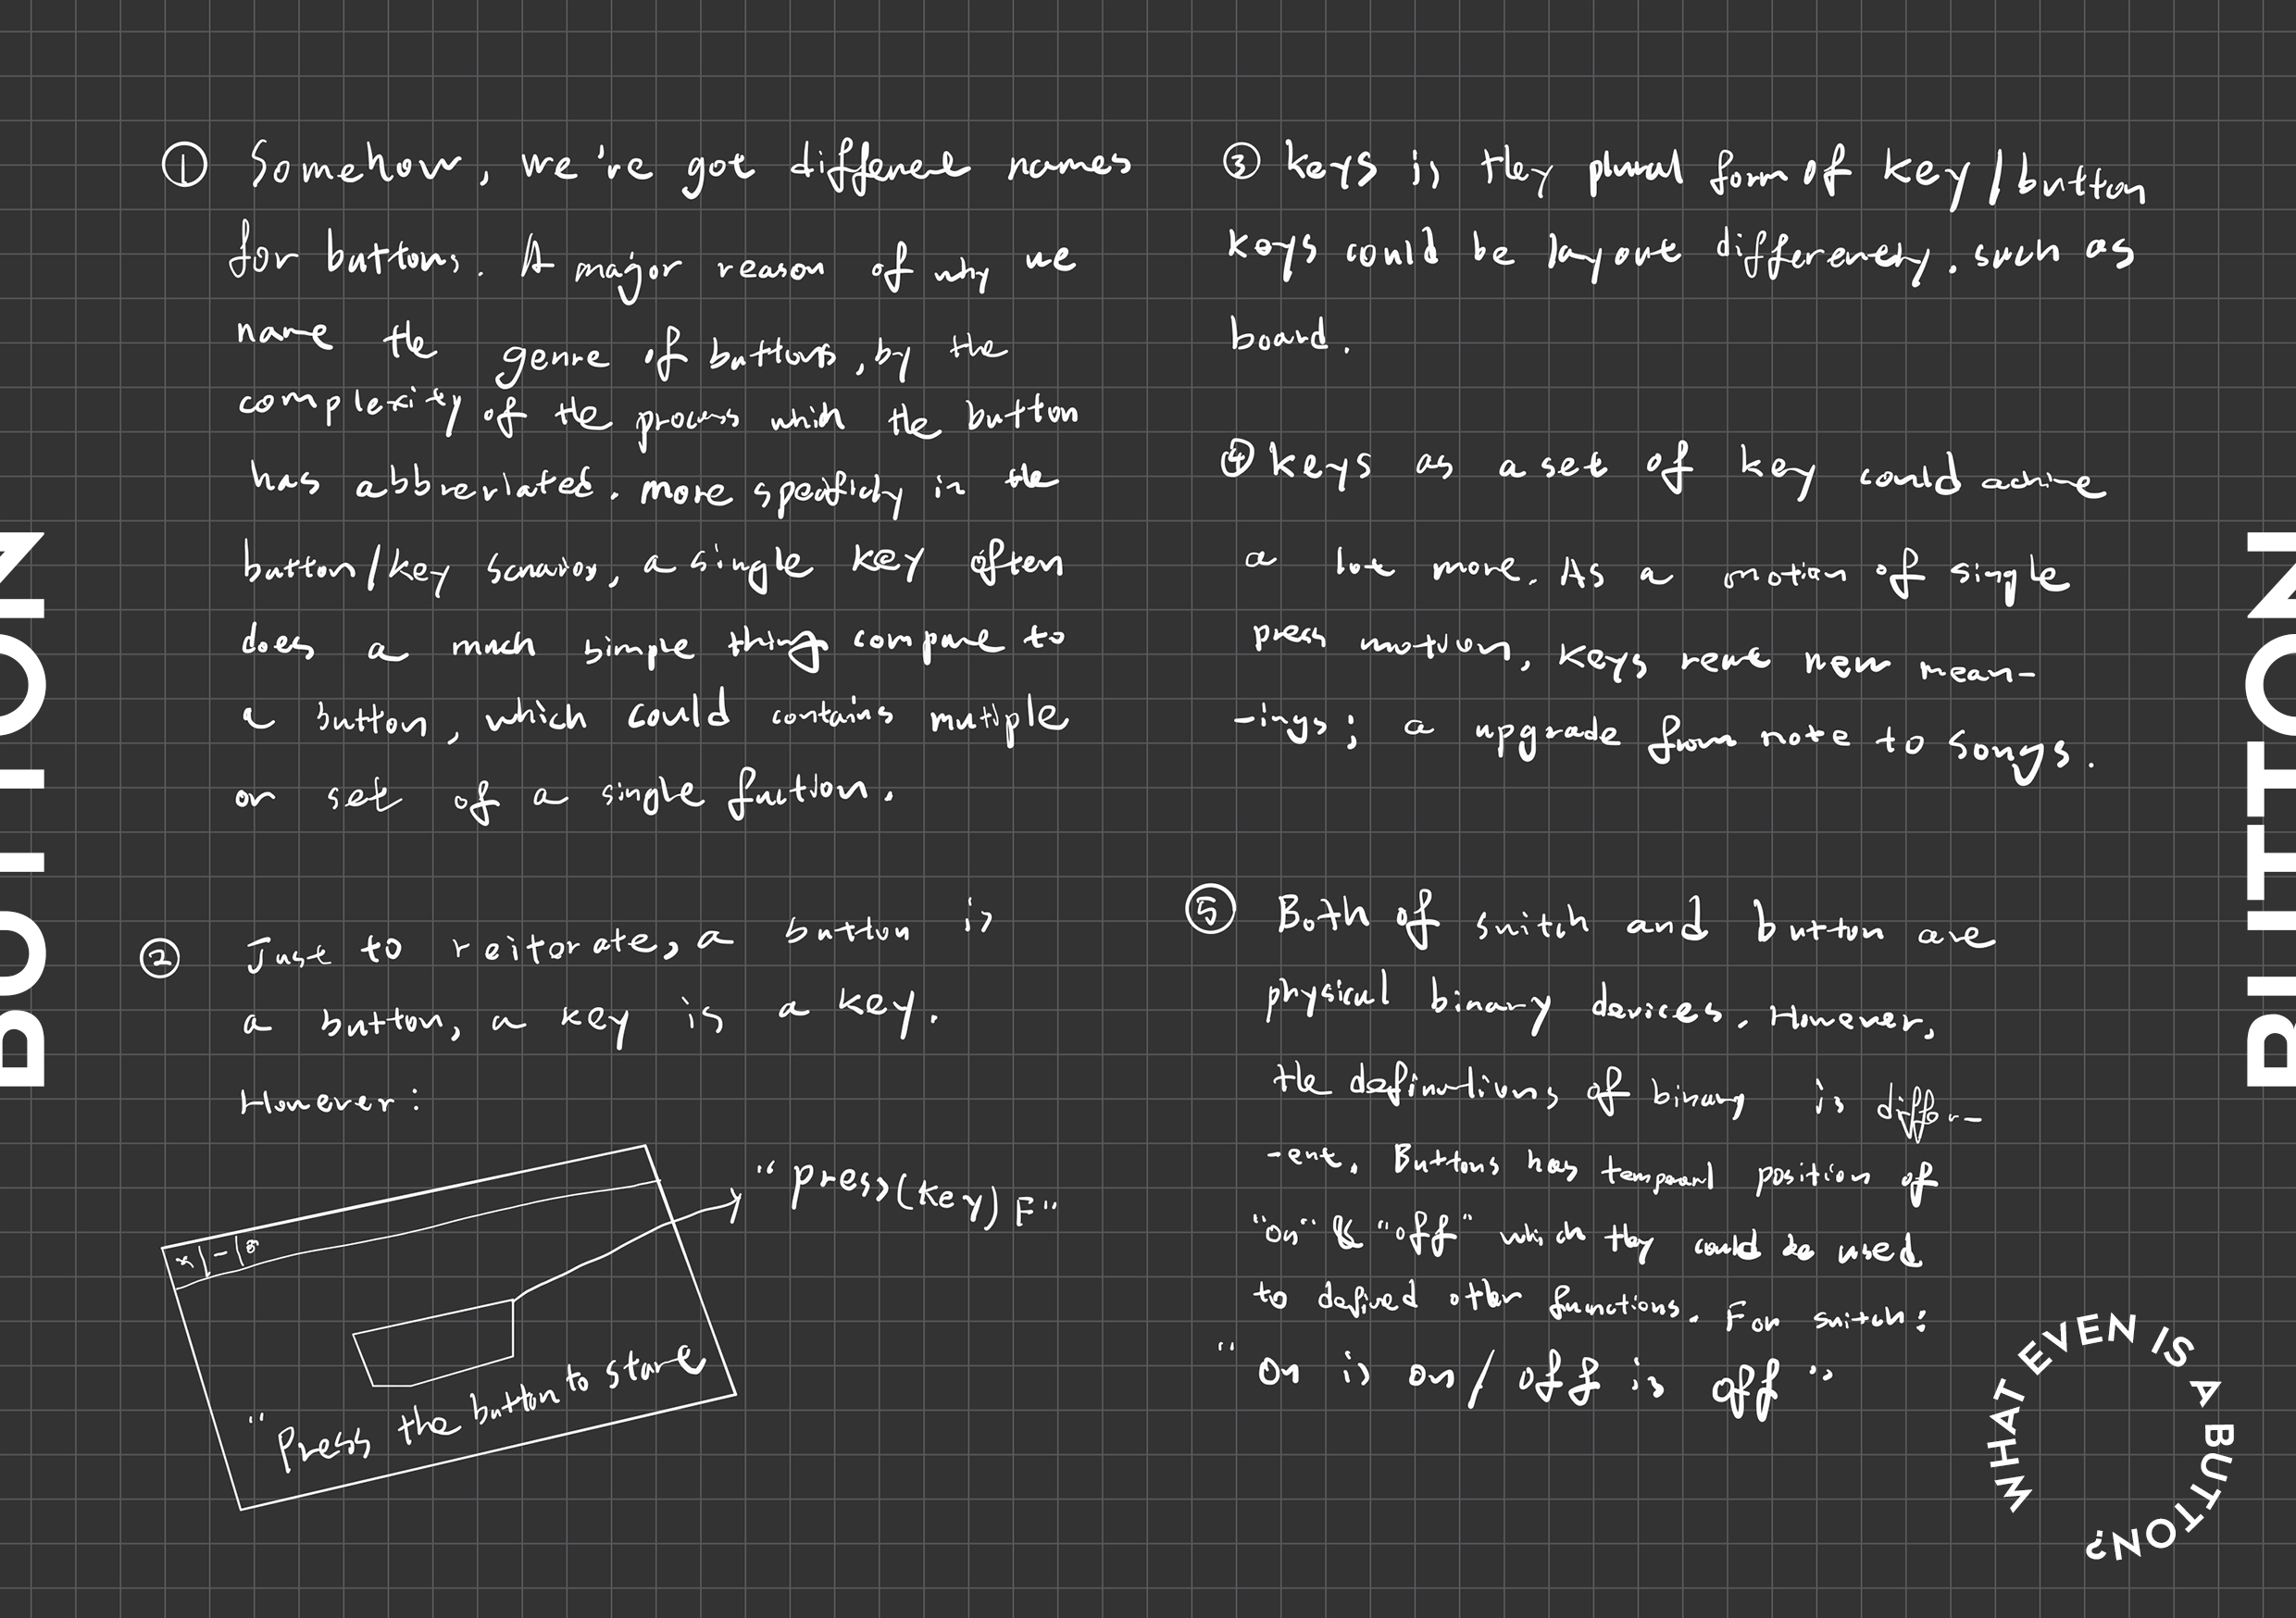 ① Somehow, we're got different names
for buttons. A major reason of why we
name the genre of buttons, by the
complexity of the process which the button
has abbreviated. more
in the
button/key
a single key often
does a much simple thing compare to
a button, which could contains mutiple
or set of a single fuction.
② Just to reitorate, a button is
a button, a key is a key.
However:
"press(key) F"
x|-|
"Press the button to start
③ keys is they plural form of key/button
keys could be layout differently. such as
board.
④ keys as a set of key could
a lot more. As a motion of single
press motion, keys new mean-
-ings; a upgrade from note to songs.
⑤ Both of switch and button are
physical binary devices. However,
the of binary is differ-
-ent. Buttons has position of
"on" & "off" which they could be used
to defined other functions. For switch:
"On is on/off is off"
BUTTON
BUTTON
WHAT EVEN IS A BUTTON?